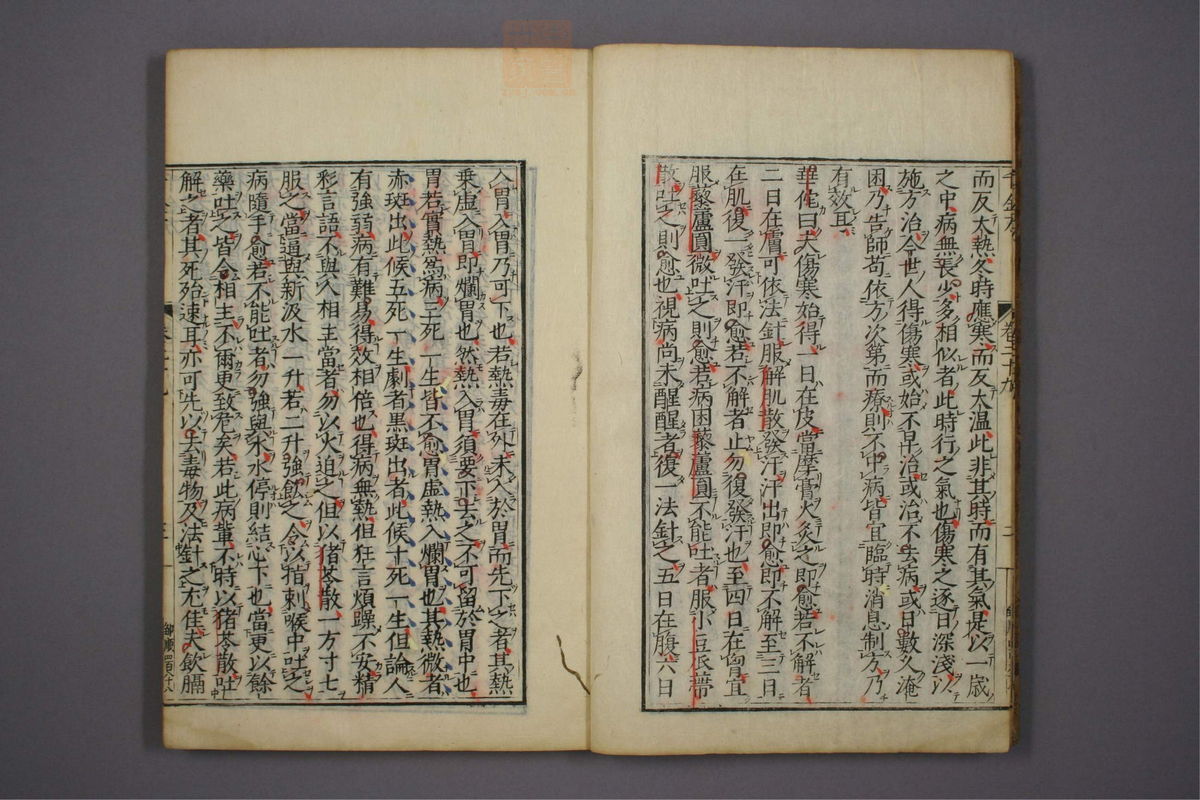 而反大熱冬時應寒而反大温此非其時而有其氣是以一歳
之中病無長少多相似者此時行之氣也傷寒之逐日深淺以
施方治今世人得傷寒或始不早治或治不去病或日數久淹
困乃告師苟依方次第而療則不中病皆宜臨時消息制方乃
有效耳
華佗曰夫傷寒始得一日在皮當摩膏火灸之即愈若不解者
二日在膚可依法針服解肌散發汗汗出即愈即不解至三日
在肌復一發汗即愈若不解者止勿復發汗也至四日在胷宜
服藜蘆圓微吐之則愈若病困藜蘆圓不能吐者服小豆瓜蒂
散吐之則愈也視病尚未醒醒者復一法針之五日在腹六日
卷二十九
入胃入胃乃可下也若熱毒在外未入於胃而先下之者其熱
乗虚入胃即爛胃也然熱入胃須要下去之不可留於胃中也
胃若實熱爲病三死一生皆不愈胃虚熱入爛胃也其熱微者
赤斑出此候五死一生劇者黒斑出者此候十死一生但論人
有強弱病有難易得效相倍也得病無熱但狂言煩躁不安精
彩言語不與人相主當者勿以火迫之但以猪苓散一方寸七
服之當逼與新汲水一升若二升強飲之令以指刺喉中吐之
病隨手愈若不能吐者勿強與水水停則結心下也當更以餘
藥吐之皆令相主不爾更致危矣若此病軰不時以猪苓散吐
解之者其死殆速耳亦可先以去毒物及法針之尤佳夫飲膈